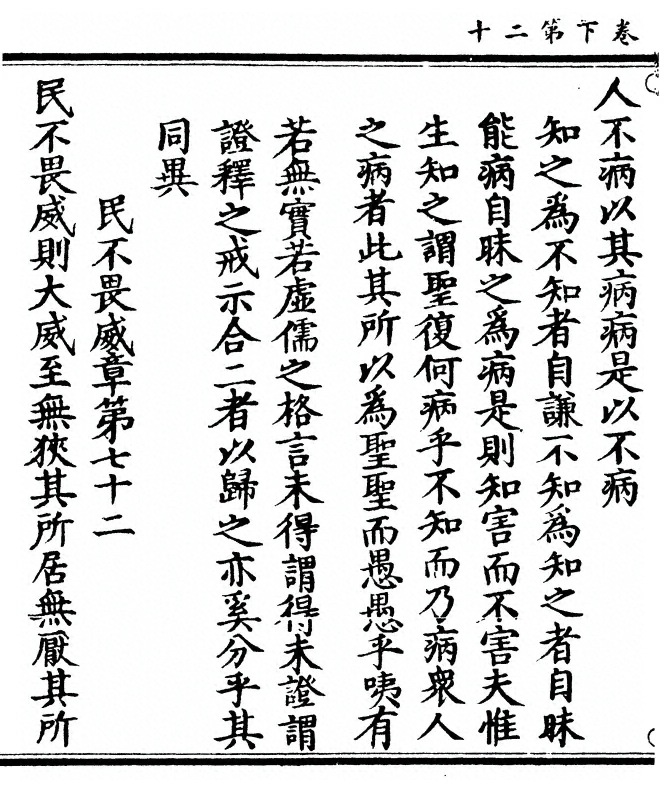 卷下第二十
人不病以其病病是以不病
知之為不知者自謙不知為知之者自昧
能病自昧之為病是則知害而不害夫惟
生知之謂聖復何病乎不知而乃病衆人
之病者此其所以為聖聖而愚愚乎咦有
若無實若虛儒之格言未得謂得未證謂
證釋之戒示合二者以歸之亦奚分乎其
同異
民不畏威章第七十二
民不畏威則大威至無狹其所居無厭其所